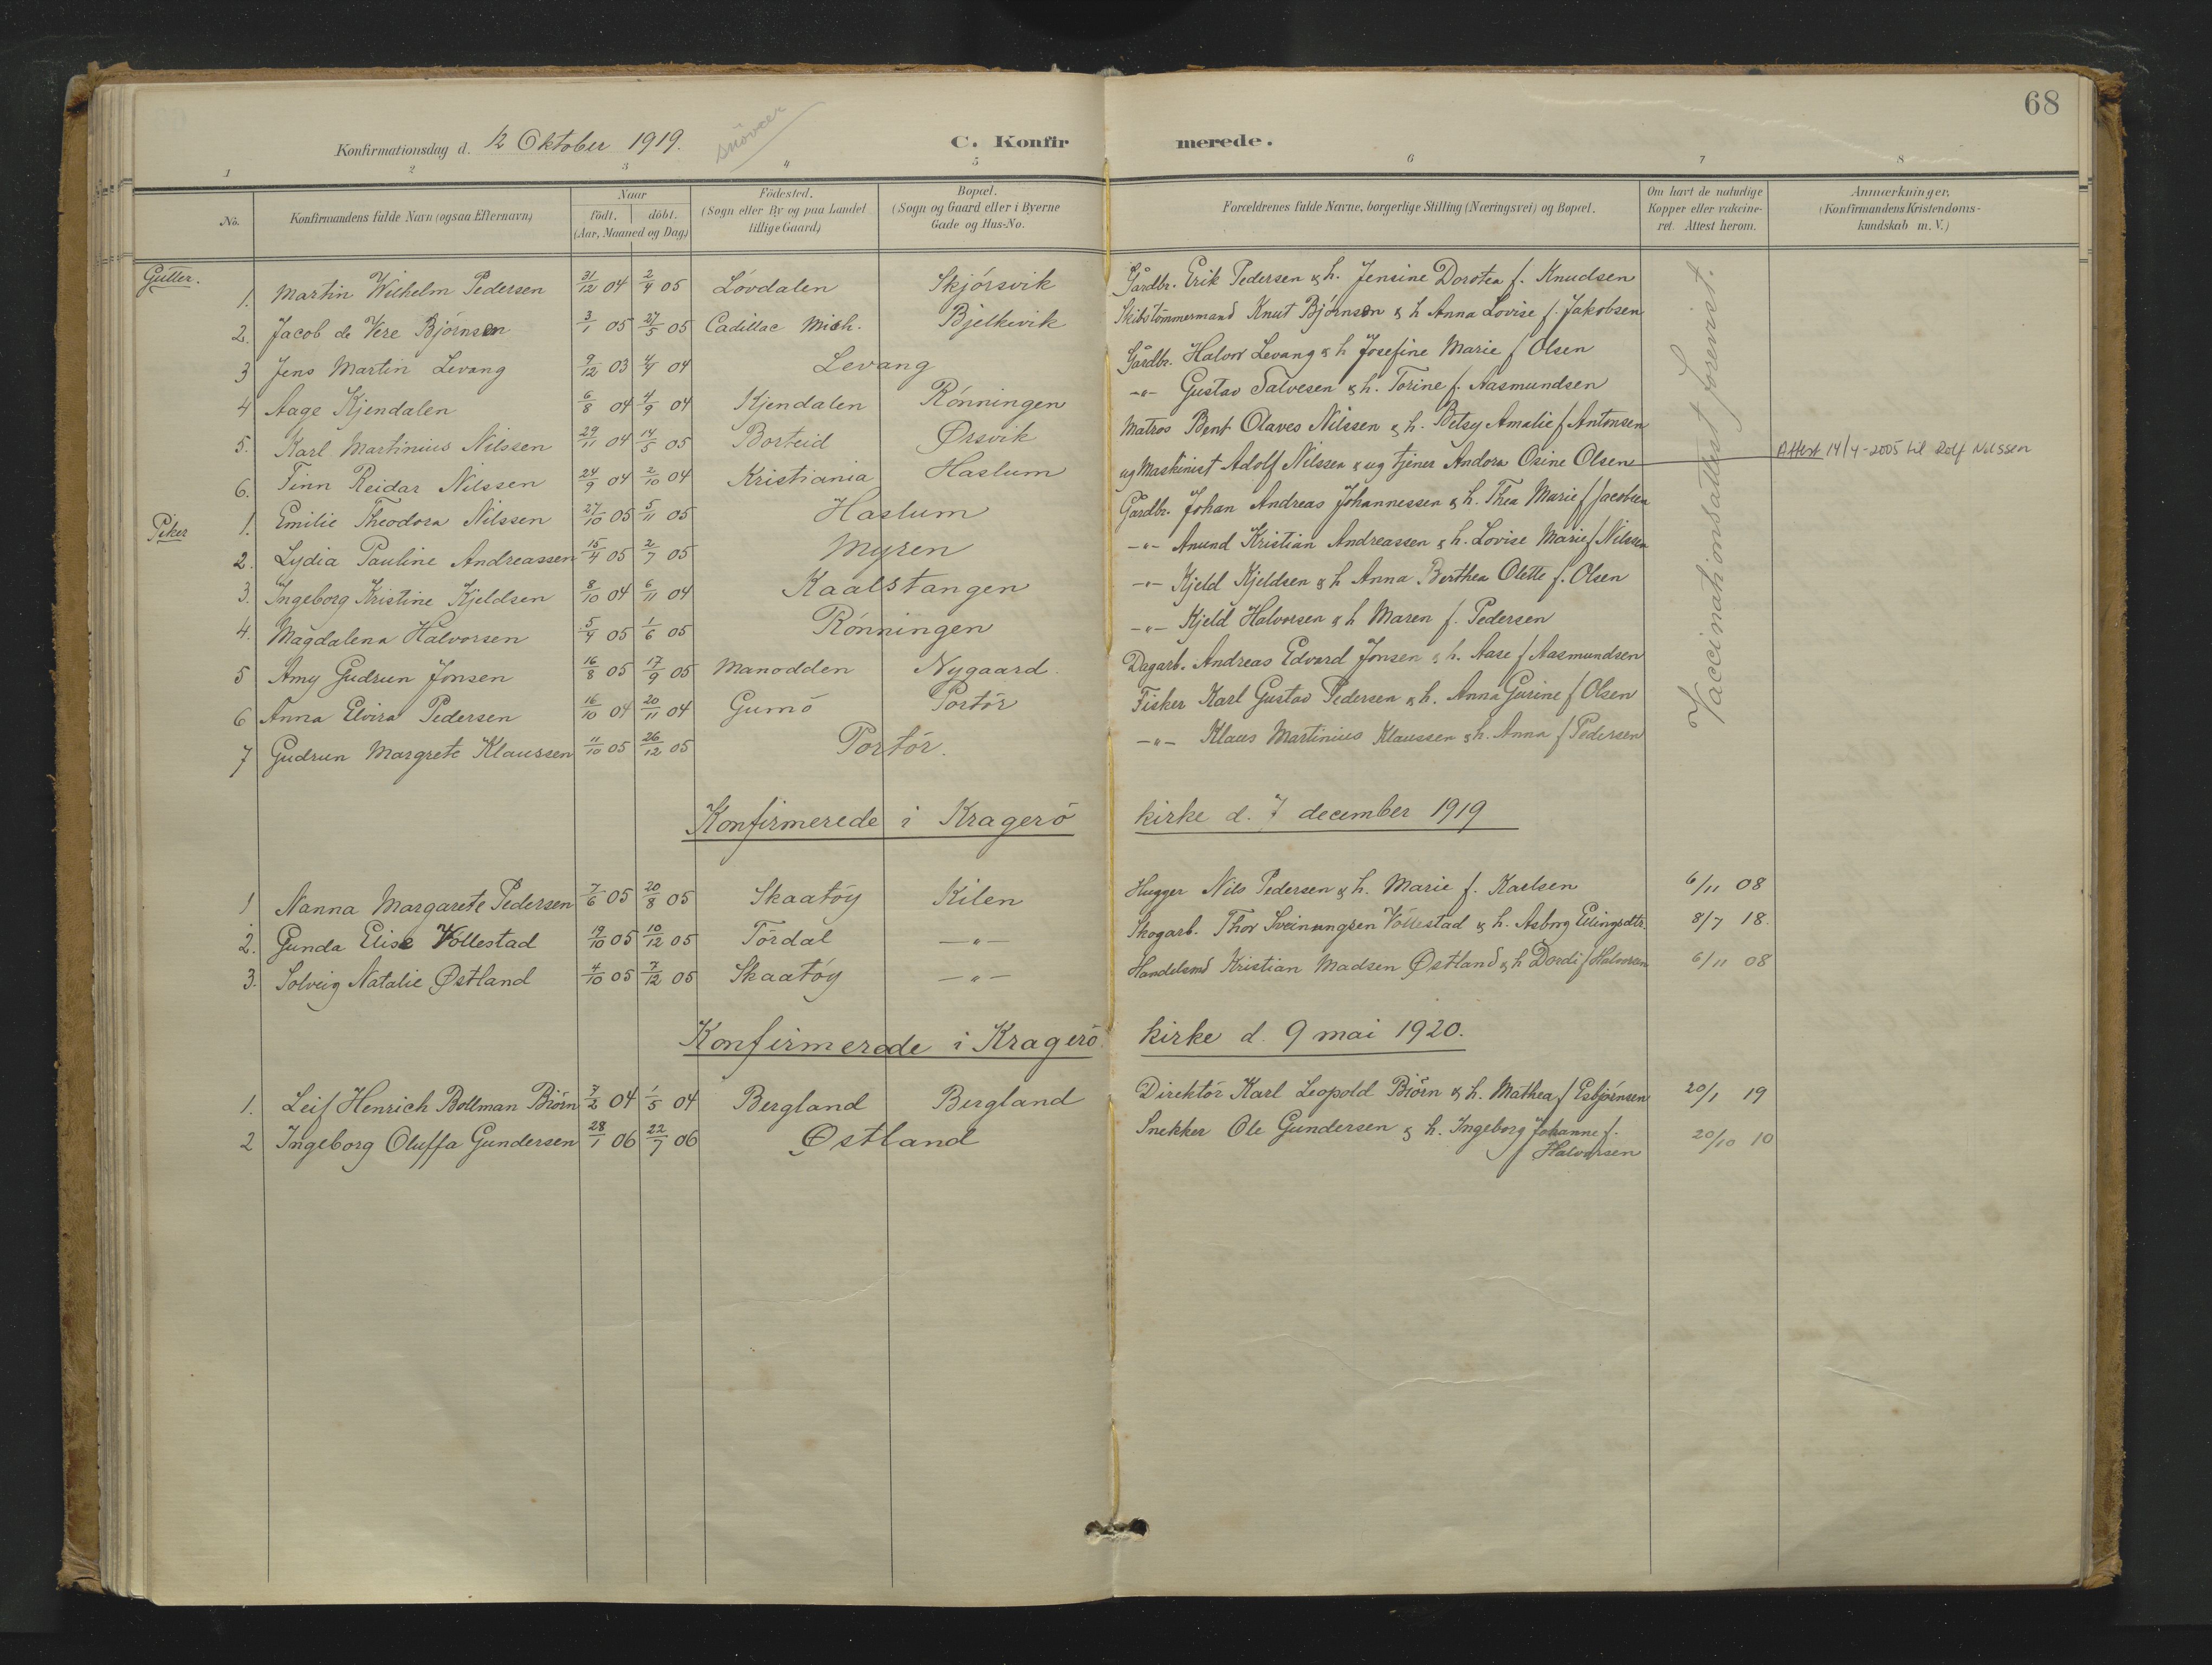 68
Konfirmationsdag d. 12 Oktober 1919. snövær C. Konfirmerede.
1 2 3 4 5 6 7 8
No. Konfirmandens fulde Navn (ogsaa Efternavn) Naar födt. döbt. (Aar, Maaned og Dag) Födested. (Sogn eller By og paa Landet tillige Gaard) Bopæl. (Sogn og Gaard eller i Byerne Gade og Hus-No. Forældrenes fulde Navne, borgerlige Stilling (Næringsvei) og Bopæl. Om havt de naturlige Kopper eller vakcineret. Attest herom. Anmærkninger. (Konfirmandens Kristendomskundskab m. V.)
Gutter.
1. Martin Wilhelm Pedersen 31/12 04 2/4 05 Lövdalen Skjörsvik Gårdbr. Erik Pedersen & h. Jensine Dorotea f. Knudsen
2. Jacob de Vere Björnson 3/1 05 27/5 05 Cadillac Mich. Bjelkevik Skibstömmermand Knut Björnson & h Anna Lovise f. Jakobsen
3 Jens Martin Levang 9/12 03 4/4 04 Levang Gårdbr. Halvor Levang & h Josefine Marie f Olsen
4 Aage Kjendalen 6/8 04 4/9 04 Kjendalen Rönningen -"- Gustav Salvesen & h. Torine f. Aasmundsen
5. Karl Martinius Nilssen 29/11 04 14/5 05 Borteid Ørsvik Matros Bent Olaves Nilssen & h. Betsy Amalie f Antonsen
6. Finn Reidar Nilssen 24/9 04 2/10 04 Kristiania Haslum ug Maskinist Adolf Nilssen & ug tjener Andora Osine Olsen Attest 14/4-2005 til Rolf Nilssen
Piker
1. Emilie Theodora Nilssen 27/10 05 5/11 05 Haslum Gårdbr. Johan Andreas Johannessen & h. Thea Marie f Jacobsen
2. Lydia Pauline Andreassen 15/4 05 2/7 05 Myren -"- Anund Kristian Andreassen & h. Lovise Marie f Nilssen
3. Ingeborg Kristine Kjeldsen 8/10 04 6/11 04 Kaalstangen -"- Kjeld Kjeldsen & h Anna Berthea Olette f. Olsen
4. Magdalena Halvorsen 5/4 05 1/6 05 Rönningen -"- Kjeld Halvorsen & h Maren f. Pedersen
5 Amy Gudrun Jonsen 16/8 05 17/9 05 Manodden Nygaard. Dagarb. Andreas Edvard Jonsen & h. Aase f Aasmundsen
6 Anna Elvira Pedersen 16/10 04 20/11 04 Gumö Portör Fisker Karl Gustav Pedersen & h. Anna Gurine f Olsen
7 Gudrun Margrete Klaussen 11/10 05 26/12 05 Portör. -"- Klaus Martinius Klaussen & h. Anna f Pedersen
Vaccinationsattest forevist.
Konfirmerede i Kragerö kirke d. 7 december 1919
1 Nanna Margarete Pedersen 7/6 05 20/8 05 Skaatöy Kilen Hugger Nils Pedersen & h. Marie f. Karlsen 6/11 08
2. Gunda Elise Vollestad 19/10 05 10/12 05 Tördal -"- Skogarb. Thor Sveinungsen Vollestad & h. Asborg Ellingsdtr. 8/7 18.
3. Solveig Natalie Østland 4/10 05 7/12 05 Skaatöy -"- Handelsmd Kristian Madsen Østland & h Dordi f Halvorsen 6/11 08
Konfirmerede i Kragerö kirke d. 9 mai 1920.
1. Leif Henrich Bollman Biörn 7/2 04 1/5 04 Bergland Bergland Direktör Karl Leopold Biörn & h. Mathea f Esbjörnsen 20/1 19
2 Ingeborg Oluffa Gundersen 28/1 06 22/7 06 Østland Snekker Ole Gundersen & h. Ingeborg Johanne f. 20/10 10
f Halvorsen